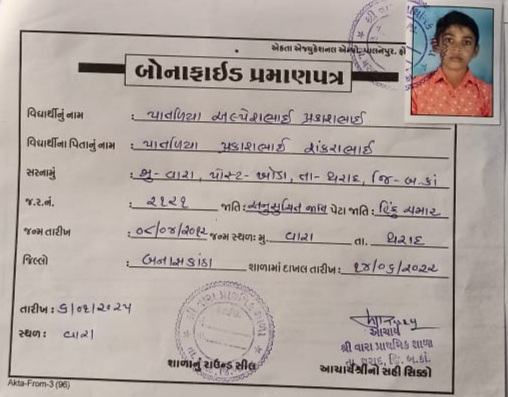 એકતા એજ્યુકેશનલ એમ્પો. પાલનપુર. ફો
બોનાફાઈડ પ્રમાણપત્ર
વિદ્યાર્થીનું નામ : પાતળિયા અલ્પેશભાઈ પ્રકાશભાઈ
વિદ્યાર્થીના પિતાનું નામ : પાતળિયા પ્રકાશભાઈ શંકરાભાઈ
સરનામું : મુ- વારા, પોસ્ટ- ખોડા, તા- થરાદ, જિ- બ.કાં
જ.ર.નં. : ૨૧૨૧ જાતિ : અનુસુચિત જાતિ પેટા જાતિ : હિંદુ ચમાર
જન્મ તારીખ : ૦૮/૦૪/૨૦૧૨ જન્મ સ્થળ: મુ. વારા તા. થરાદ
જિલ્લો : બનાસકાંઠા શાળામાં દાખલ તારીખ :
તારીખ :
સ્થળ : વારા
આચાર્ય
શ્રી વારા પ્રાથમિક શાળા
તા. થરાદ, જિ. બ.કાં.
શાળાનું રાઉન્ડ સીલ
આચાર્યશ્રીની સહી સિક્કો
Akta-From-3 (96)